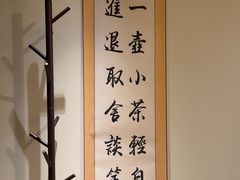 一壺小茶輕自
進退取舍談笑